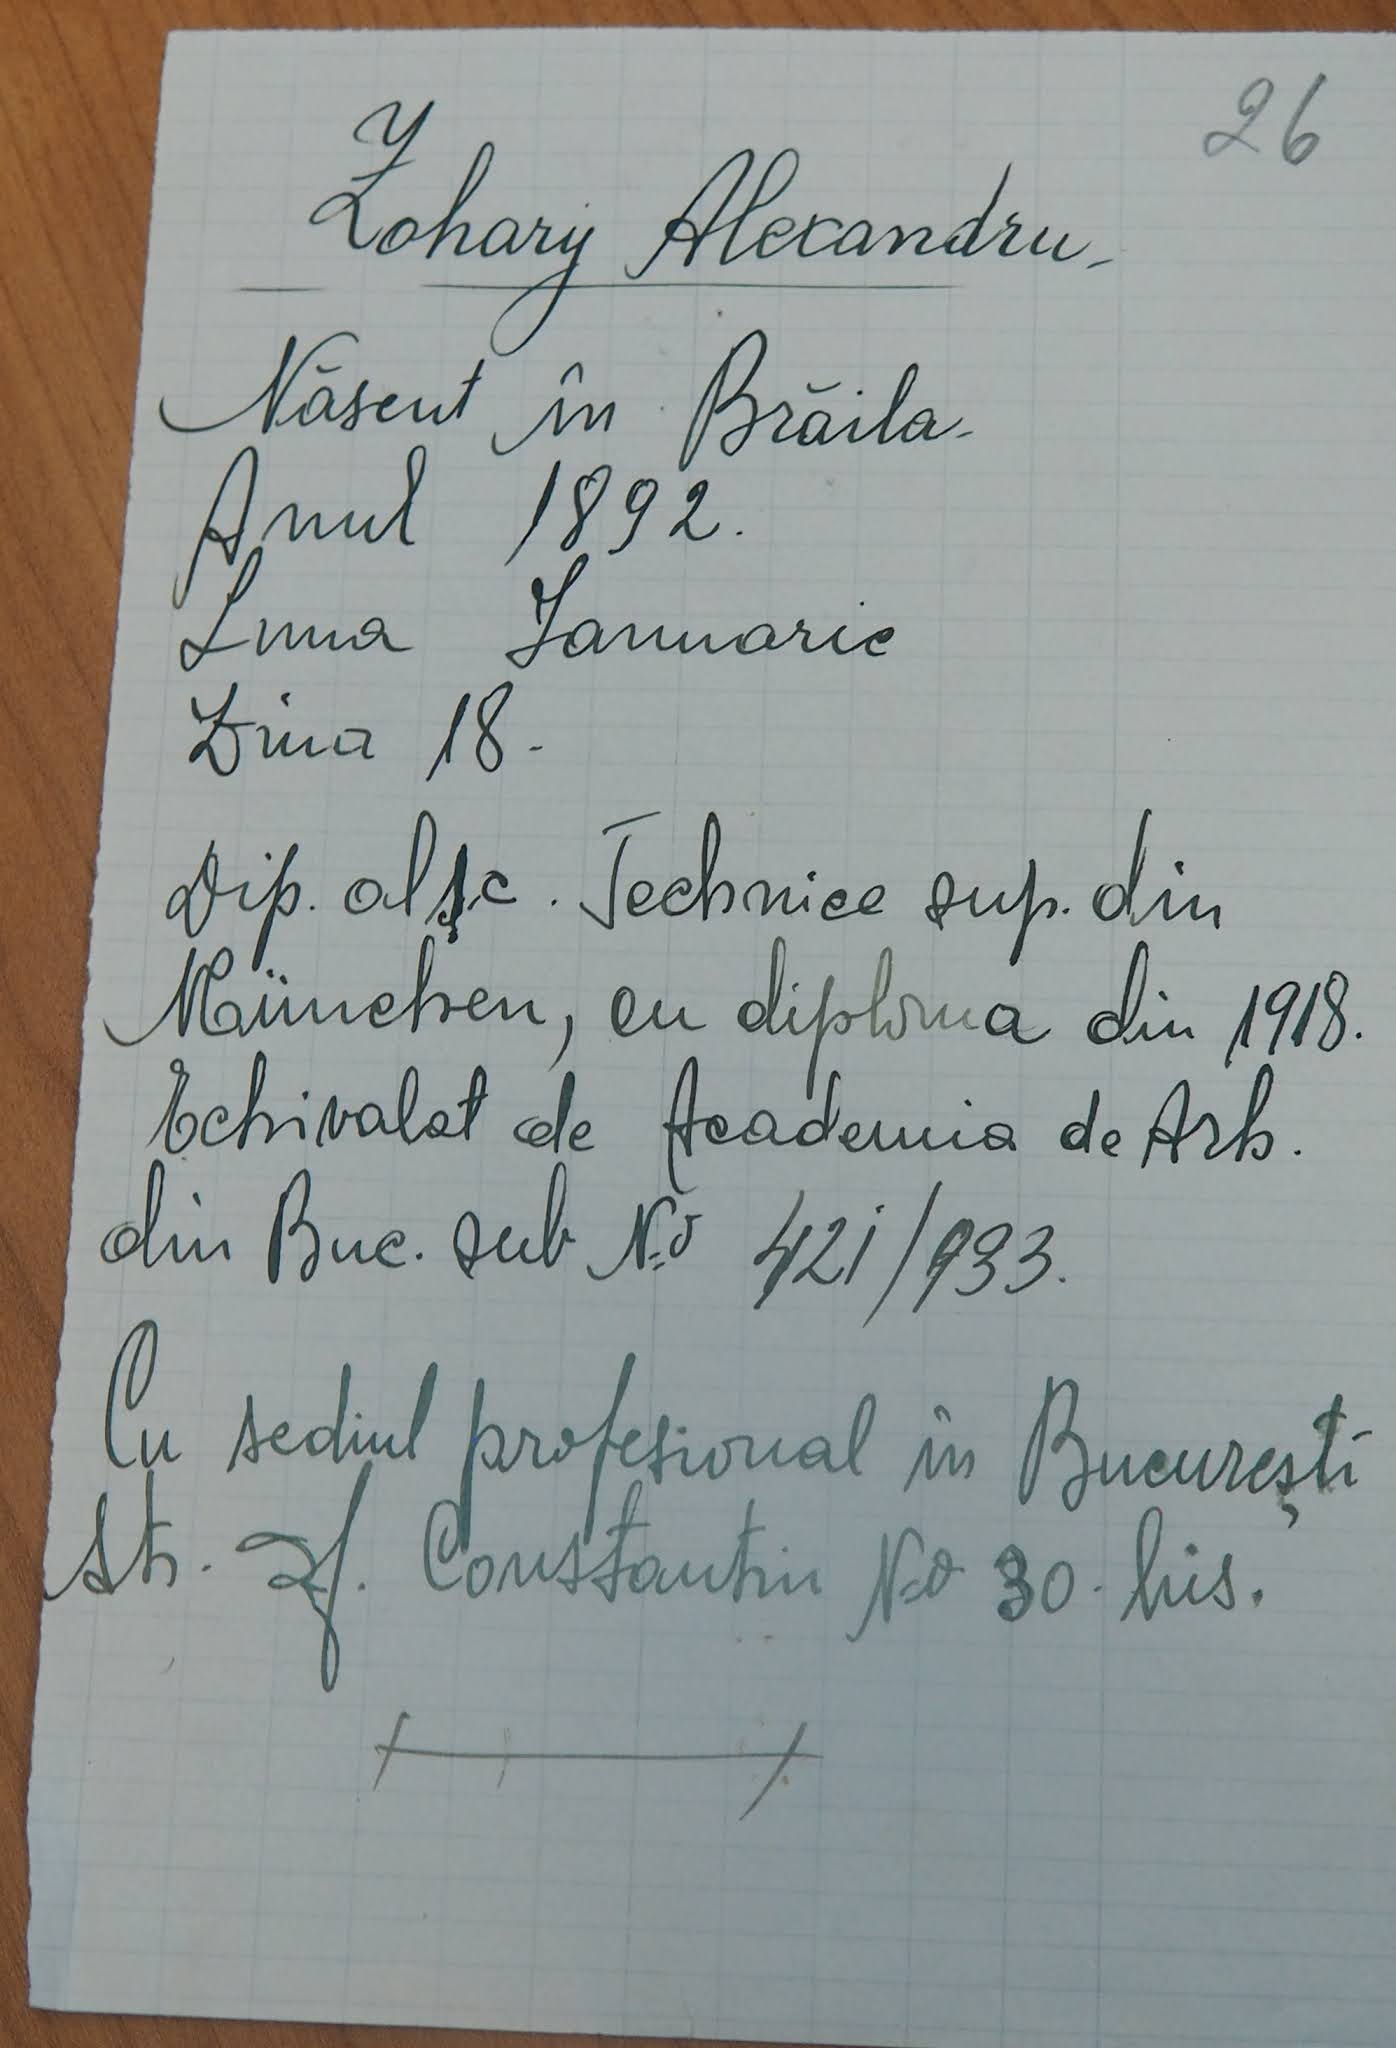 26
Zohary Alexandru-
Născut în Brăila-
Anul 1892.
Luna Ianuarie
Ziua 18-
Dip. al Șc. Technice sup. din
München, cu diploma din 1918.
Echivalat de Academia de Arh.
din Buc. sub No 421/933.
Cu sediul profesional în București
Str. Sf. Constantin No 30 bis.